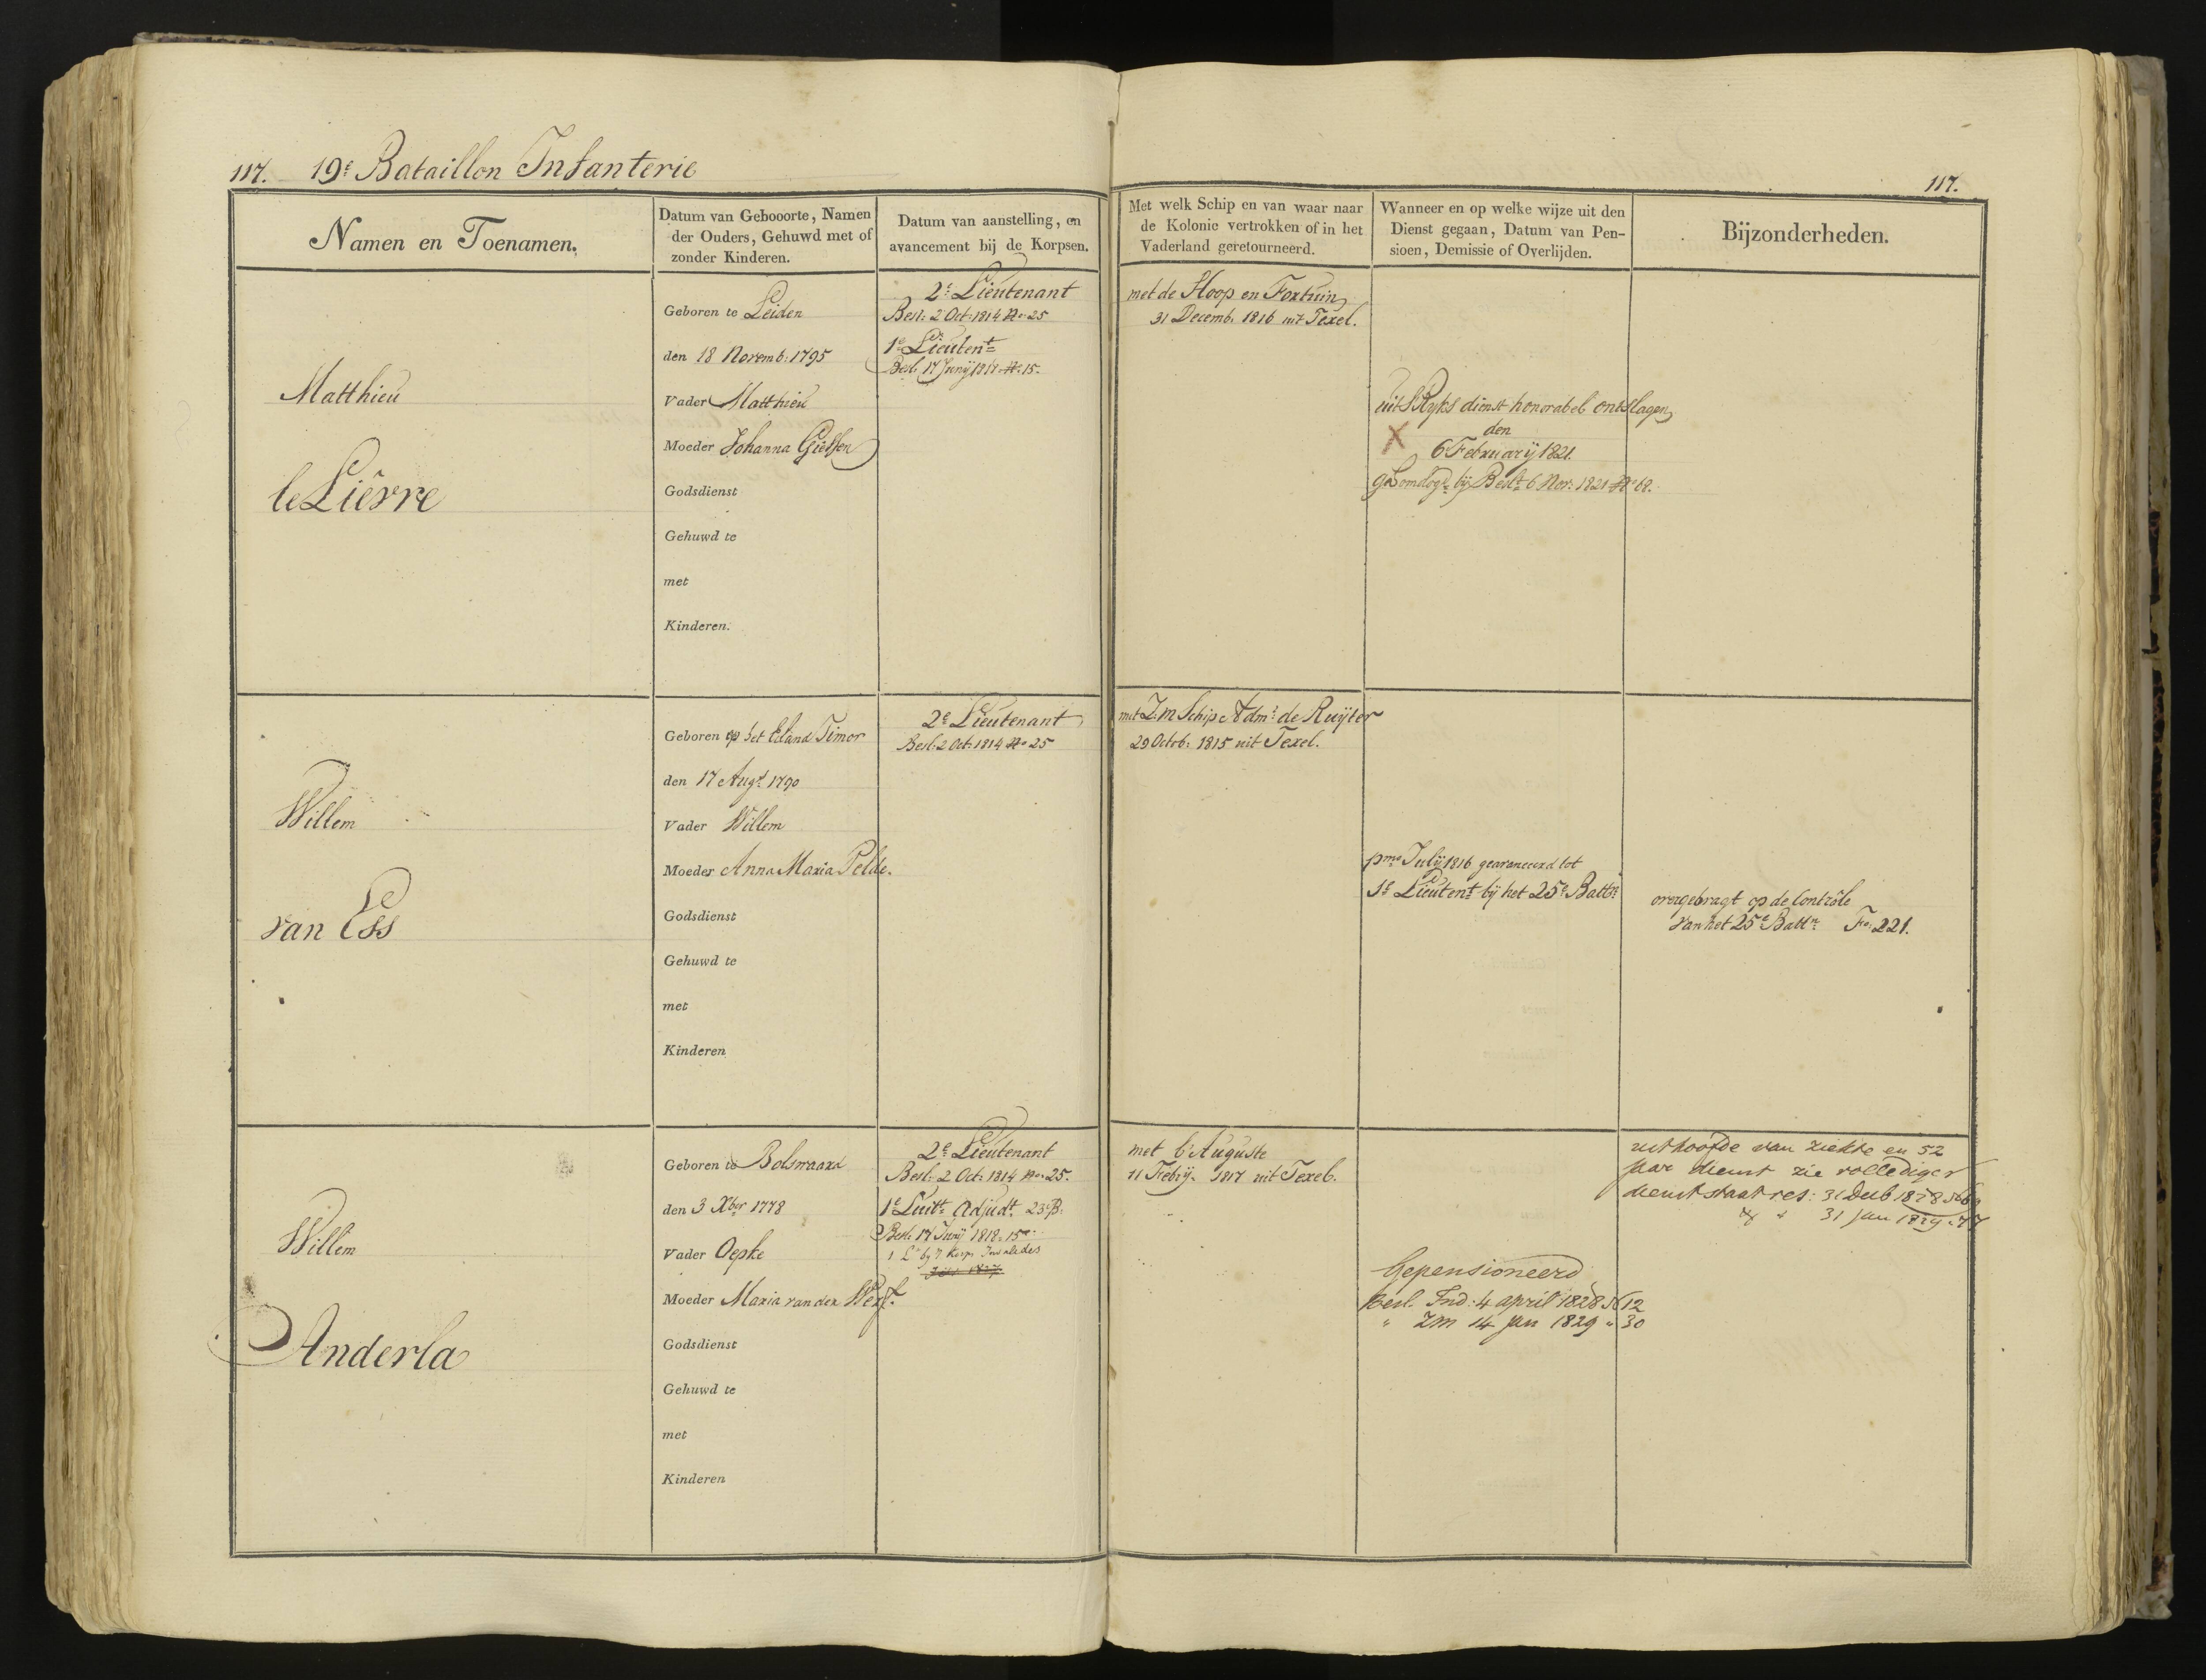 117. 19e Bataillon Infanterie
117.
Namen en Toenamen.
Datum van Gebooorte, Namen
der Ouders, Gehuwd met of
zonder Kinderen.
Datum van aanstelling, en
avancement bij de Korpsen.
Met welk Schip en van waar naar
de Kolonie vertrokken of in het
Vaderland geretourneerd.
Wanneer en op welke wijze uit den
Dienst gegaan, Datum van Pen-
sioen, Demissie of Overlijden.
Bijzonderheden.
Matthieu
le Liêvre
Geboren te Leiden
den 18 Novemb: 1795
Vader Matthieu
Moeder Johanna
Godsdienst
Gehuwd te
met
Kinderen.
2e Lieutenant
Besl: 2 Oct: 1814 No 25
1e Lieutent
Besl: 17 Junij 1817 No 15.
met de Hoop en Fortuin
31 Decemb. 1816 uit Texel.
uit S'Ryks dienst honorabel ontslagen
den
6 February 1821.
gehomologd bij Beslt 6 Nov: 1821 No 68.
Willem
van Ess
Geboren op het Eiland Timor
den 17 Augt 1790
Vader Willem
Moeder Anna Maria Pelde.
Godsdienst
Gehuwd te
met
Kinderen
2e Lieutenant
Besl: 2 Oct: 1814 No 25
met Z.M Schip Admt de Ruijter
29 Octob: 1815 uit Texel.
pmo Julij 1816 geavanceerd tot
1e Lieutent bij het 25e Battn
overgebragt op de Contrôle
van het 25e Battn Fo: 221.
Willem
Anderla
Geboren te Bolswaard
den 3 Xber 1778
Vader Oepke
Moeder Maria van der Werf.
Godsdienst
Gehuwd te
met
Kinderen
2e Lieutenant
Besl: 2 Oct: 1814 No 25.
1e Luitt Adjudt 23e B:
Besl: 17 Junij 1818 15
1 Lt by 't Korps Invalides
met l'Auguste
11 Febrij. 1817 uit Texel.
Gepensioneerd
Besl. Ind: 4 april 1828 N 12
" ZM 14 Jan 1829 " 30
uithoofde van ziekte en 52
jaar dienst zie vollediger
dienststaat res:
31 Jan 1829